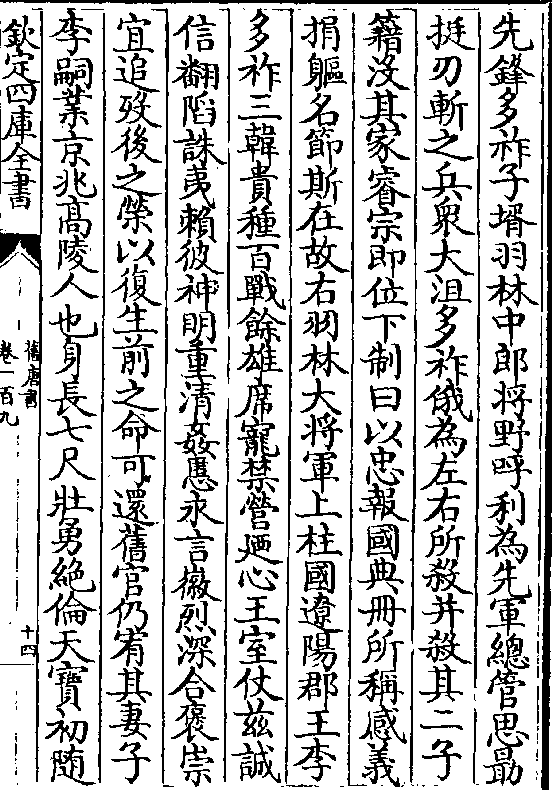 先鋒多祚子壻羽林中郎將野呼利為先軍總管思勗
挺刃斬之兵衆大沮多祚俄為左右所殺并殺其二子
籍沒其家睿宗即位下制曰以忠報國典冊所稱感義
捐軀名節斯在故右羽林大將軍上柱國遼陽郡王李
多祚三韓貴種百戰餘雄席寵禁營廼心王室仗茲誠
信翻陷誅夷賴彼神明重清姦慝永言徽烈深合褒崇
宜追歿後之榮以復生前之命可還舊官仍宥其妻子
李嗣業京兆髙陵人也身長七尺壯勇絶倫天寶初隨
欽定四庫全書
舊唐書
卷一百九
十四